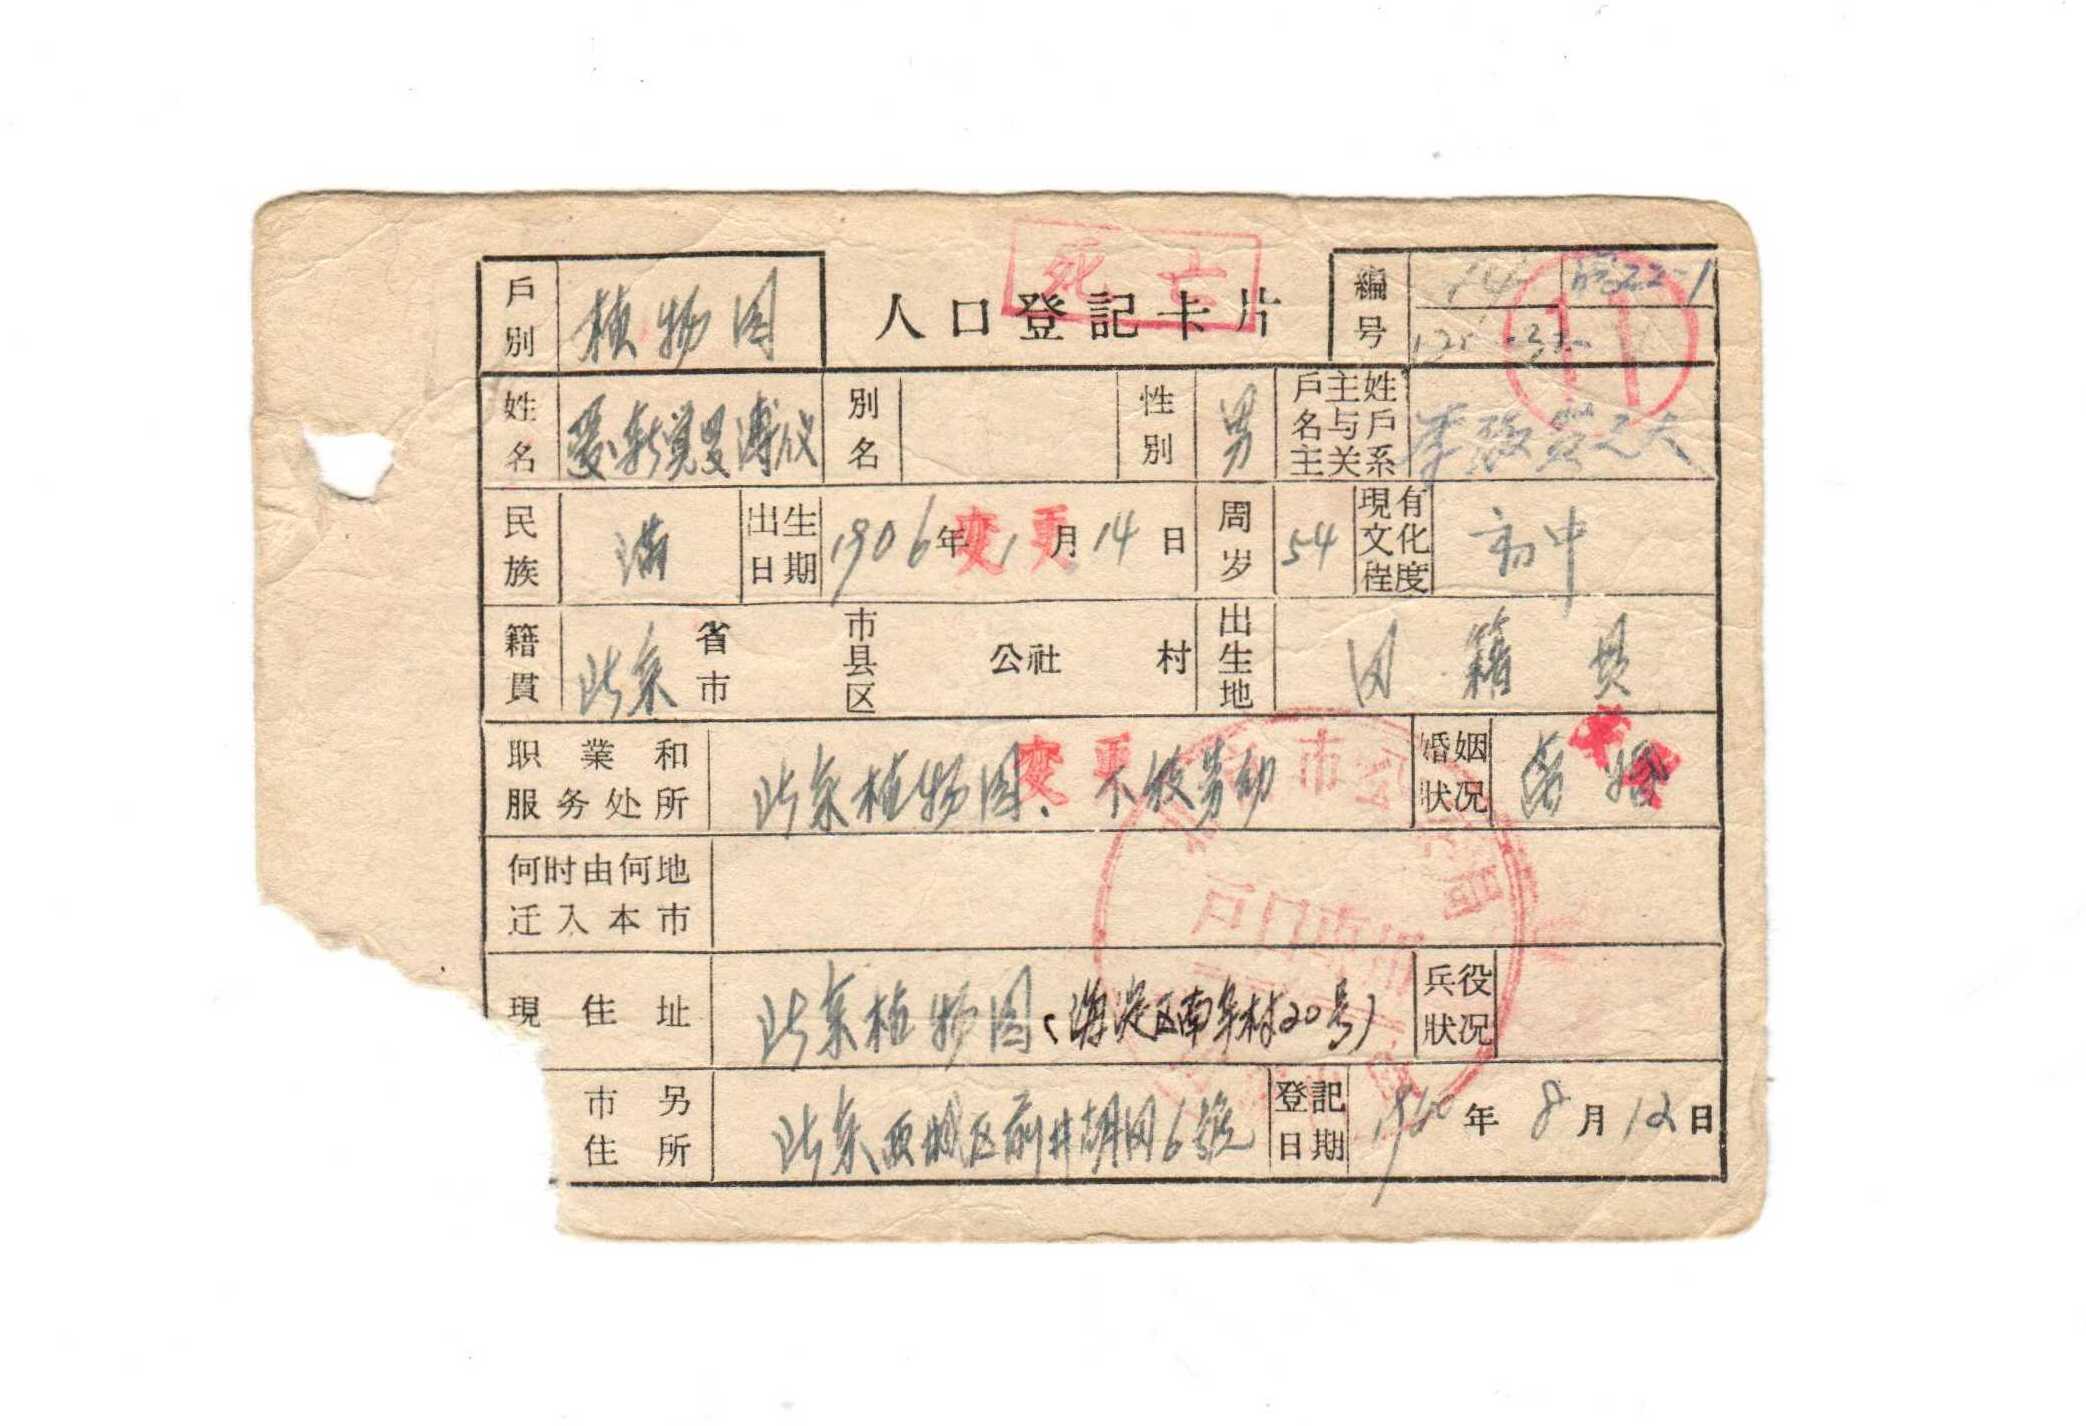 死亡
戶別 植物园 人口登記卡片 編号
姓名 爱新觉罗溥仪 別名 性別 男 戶主姓名与戶主关系
民族 满 出生日期 1906年1月14日 变更 周岁 54 現有文化程度 初中
籍貫 北京 省市 市县区 公社 村 出生地 同籍貫
职業和服务处所 北京植物园、下放劳动 变更 婚姻狀况 离婚
何时由何地迁入本市
現住址 北京植物园(海淀区南辛村20号) 兵役狀况
市另住所 北京西城区前井胡同6號 登記日期 1960年8月12日